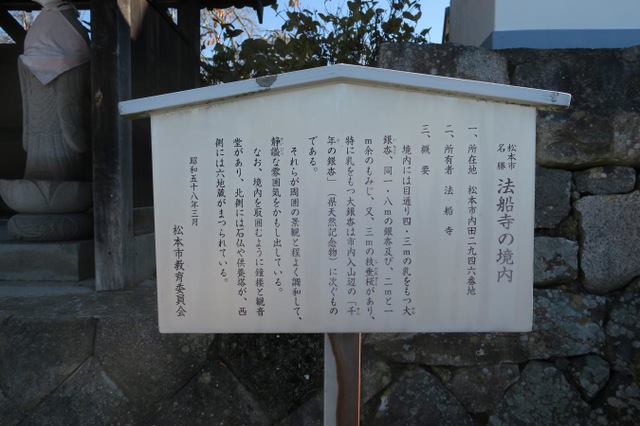 松本市
名勝 法船寺の境内
一、所在地 松本市内田二九四六番地
二、所有者 法船寺
三、概要
境内には目通り四・三mの乳をもつ大
銀杏、同一・八mの銀杏及び、二mと一
m余のもみじ、又、三mの枝垂桜があり、
特に乳をもつ大銀杏は市内入山辺の「千
年の銀杏」(県天然記念物)に次ぐもの
である。
それらが周囲の景観と程よく調和して、
静謐な雰囲気をかもし出している。
なお、境内を取囲むように鐘楼と観音
堂があり、北側には石仏や供養塔が、西
側には六地蔵がまつられている。
昭和五十八年三月
松本市教育委員会